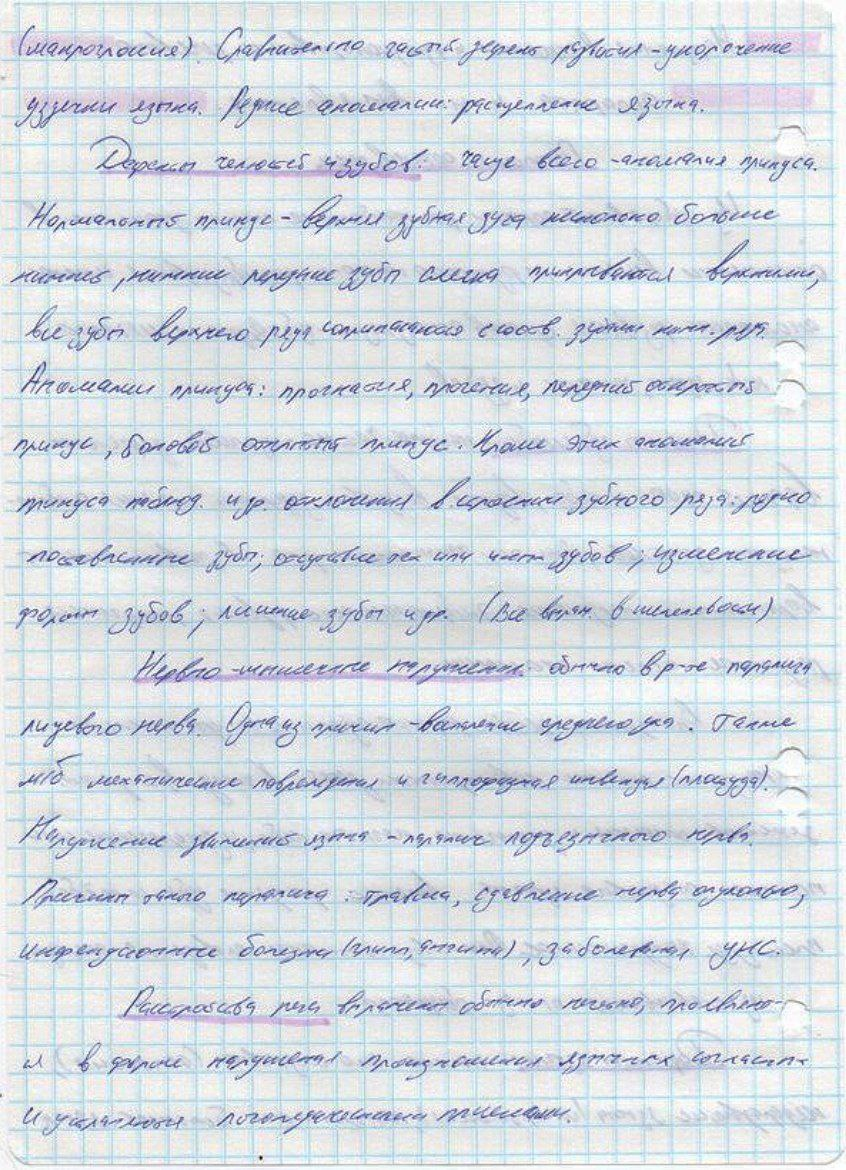 (макроглоссия). Сравнительно частый дефект развития - укорочение
уздечки языка. Редкие аномалии: расщепление языка.
Дефекты челюстей и зубов: чаще всего - аномалия прикуса.
Нормальный прикус - верхняя зубная дуга несколько больше
нижней, нижние передние зубы слегка прикрываются верхними,
все зубы верхнего ряда соприкасаются с соотв. зубами нижн. ряда.
Аномалии прикуса: прогнатия, прогения, передний открытый
прикус, боковой открытый прикус. Кроме этих аномалий
прикуса наблюд. и др. отклонения в строении зубного ряда: редко
поставленные зубы; отсутствие всех или части зубов; изменение
формы зубов; лишние зубы и др. (Все выраж. в шепелявости)
Нервно-мышечные нарушения: обычно в р-те паралича
лицевого нерва. Одна из причин - воспаление среднего уха. Также
м/б механические повреждения и инъекция (простуда).
Нарушение движений языка - паралич подъязычного нерва.
Причины такого паралича: травма, сдавление нерва опухолью,
инфекционные болезни (грипп, ангина), заболевания ЦНС.
Расстройства речи выражены обычно нечетко, проявляют-
ся в форме нарушения произношения язычных согласных
и устраняются логопедическими приемами.